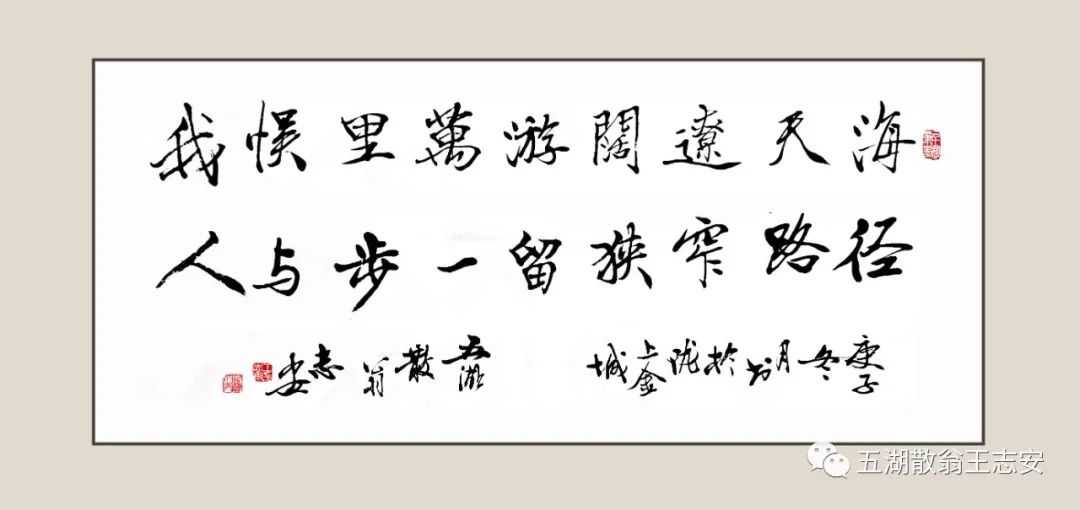 海天遼闊游萬里悞我
径路窄狭留一步与人
庚子冬月书於陇上金城 五湖散翁志安
五湖散翁王志安